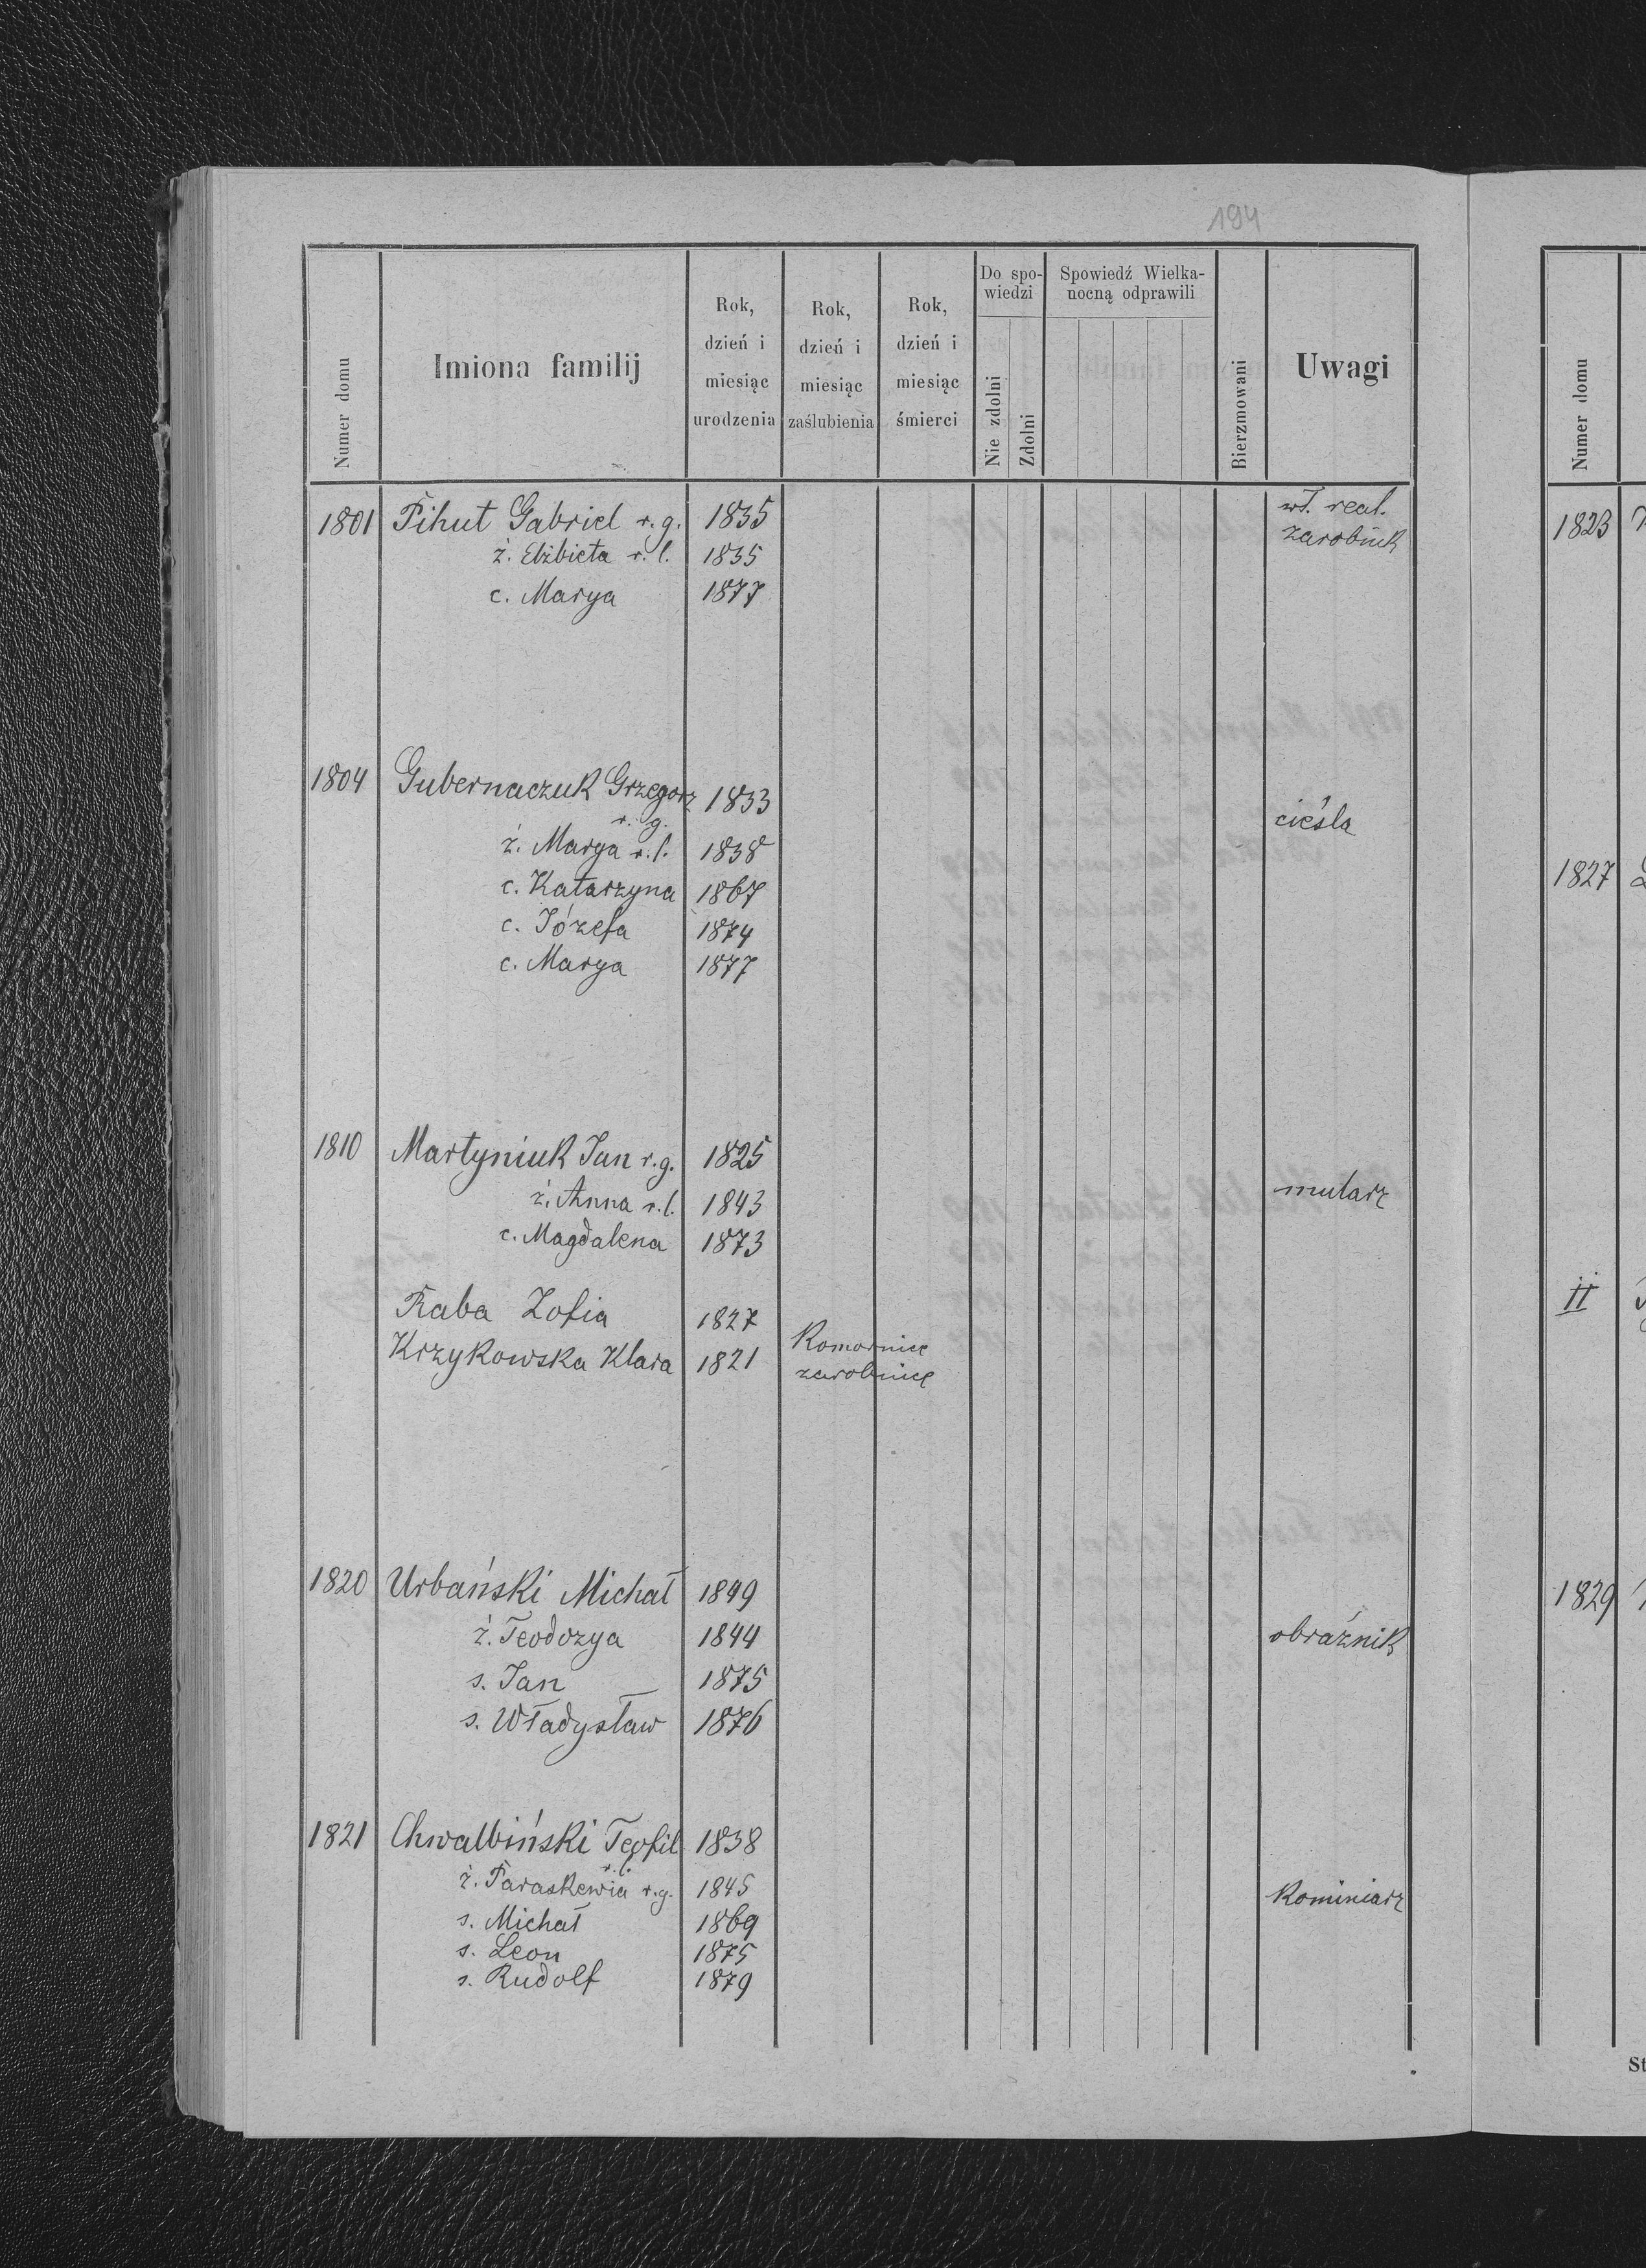 194
Numer domu
Imiona familij
Rok, dzień i miesiąc urodzenia
Rok, dzień i miesiąc zaślubienia
Rok, dzień i miesiąc śmierci
Do spo-
wiedzi
Nie zdolni
Zdolni
Spowiedź Wielka-
nocną odprawili
Bierzmowani
Uwagi
1801 Pihut Gabriel r. g. 1835 wł. real.
zarobnik
ż. Elżbieta r. l. 1835
c. Marya 1877
1804 Gubernaczuk Grzegorz 1833
r. g. cieśla
ż. Marya r. l. 1838
c. Katarzyna 1867
c. Józefa 1874
c. Marya 1877
1810 Martyniuk Jan r. g. 1825
ż. Anna r. l. 1843 mularz
c. Magdalena 1873
Raba Zofia 1827
Krzykowska Klara 1821 Komornice
zarobnice
1820 Urbański Michał 1849
ż. Teodozya 1844 obraźnik
s. Jan 1875
s. Władysław 1876
1821 Chwalbiński Teofil 1838
r. l.
ż. Paraskewia r. g. 1845 Kominiarz
s. Michał 1869
s. Leon 1875
s. Rudolf 1879
Numer domu
1823
1827
II
1829
St